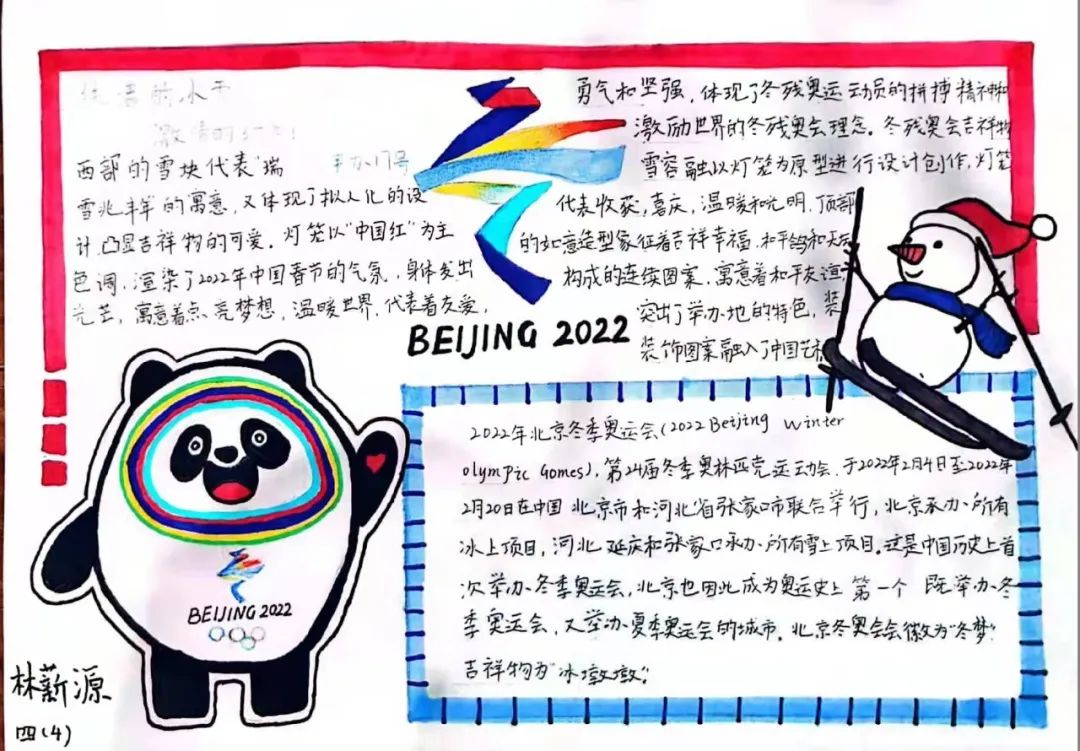 激情的
西部的雪块代表"瑞
雪兆丰年的寓意,又体现了拟人化的设
计.凸显吉祥物的可爱.灯笼以"中国红"为主
色调,渲染了2022年中国春节的气氛,身体发出
光芒,寓意着点亮梦想,温暖世界,代表着友爱,
勇气和坚强,体现了冬残奥运动员的拼搏精神和
激励世界的冬残奥会理念。冬残奥会吉祥物
雪容融以灯笼为原型进行设计创作,灯笼
代表收获,喜庆,温暖和光明.顶部
的如意造型象征着吉祥幸福.和平鸽和天
构成的连续图案,寓意着和平友谊,
突出了举办地的特色,装
装饰图案融入了中国艺术
BEIJING 2022
2022年北京冬季奥运会(2022 Beijing Winter
olympic Games),第24届冬季奥林匹克运动会,于2022年2月4日至2022年
2月20日在中国 北京市和河北省张家口市联合举行,北京承办所有
冰上项目,河北 延庆和张家口承办所有雪上项目.这是中国历史上首
次举办冬季奥运会,北京也因此成为奥运史上 第一个 既举办冬
季奥运会,又举办夏季奥运会的城市.北京冬奥会会徽为"冬梦"
吉祥物为"冰墩墩."
BEIJING 2022
林薪源
四(4)